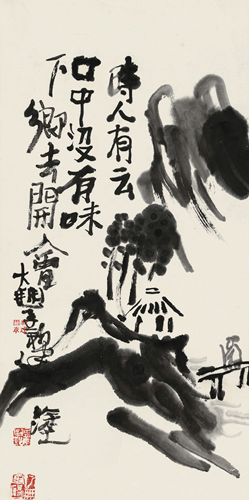 時人有云
口中沒有味
下鄉去開
會
塗